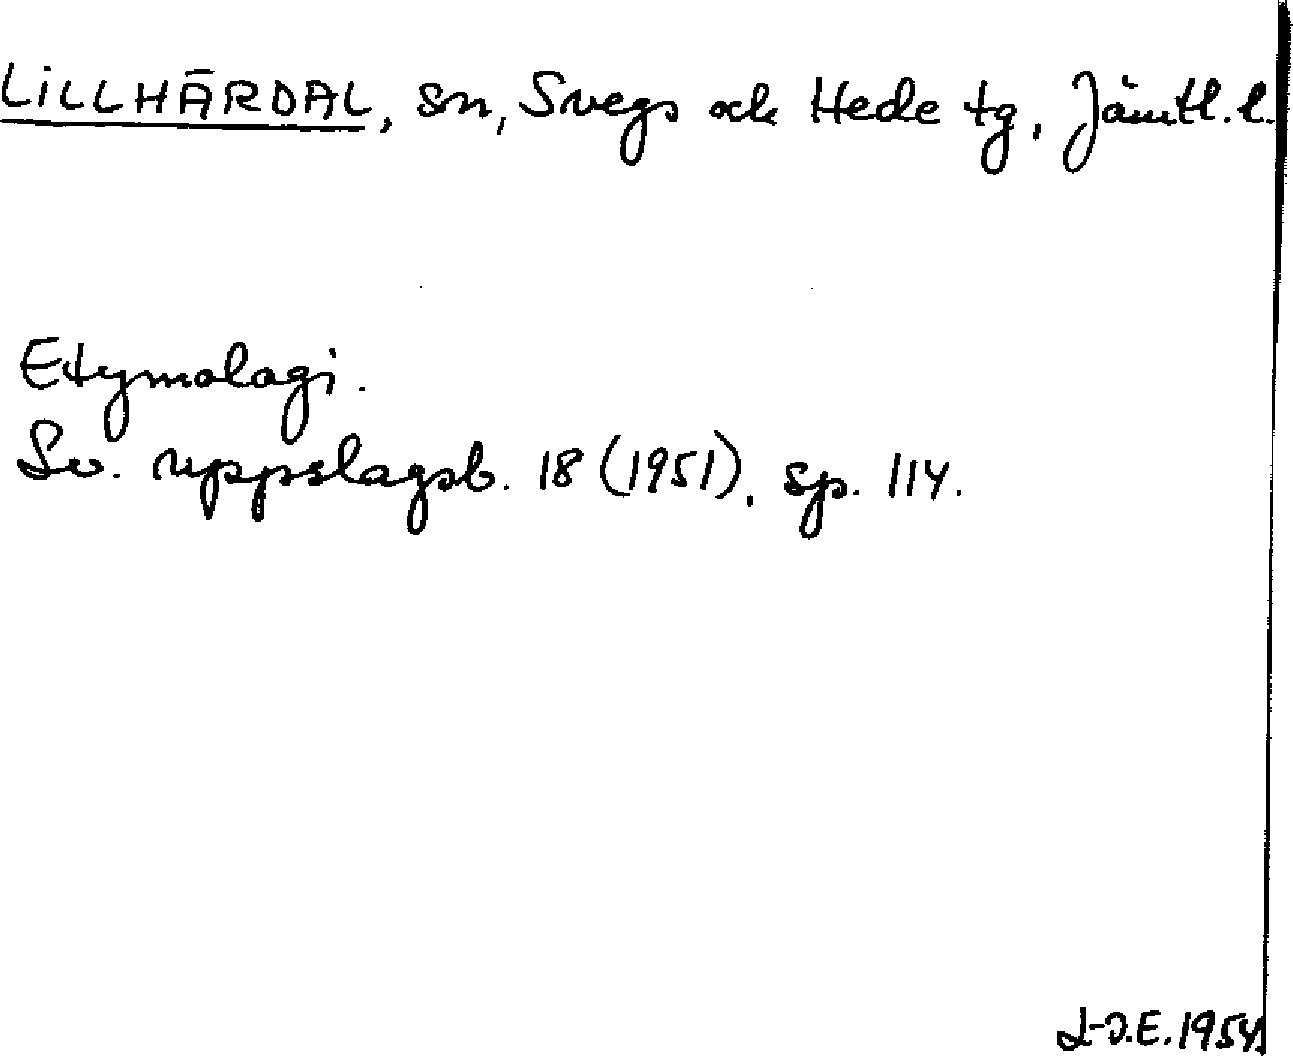 LILLHÄRDAL, sn, Svegs och Hede tg, Jämtl. l.
Etymologi.
Sv. uppslagsb. 18 (1951), sp. 114.
L-O.E. 1954